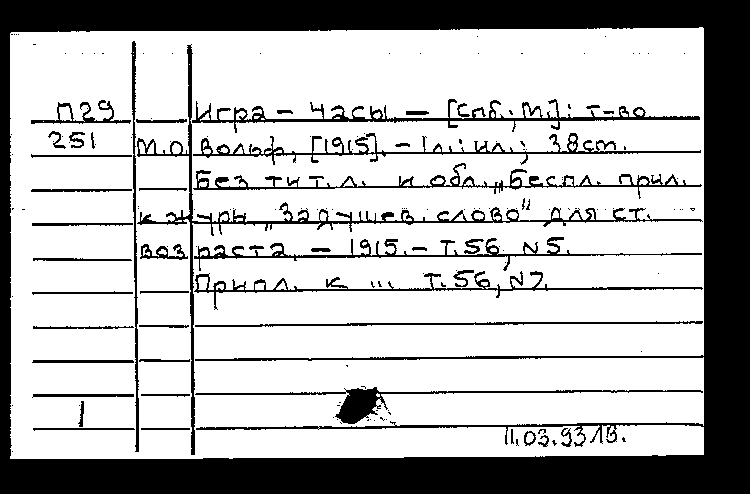 П29 Игра – часы. – [Спб.; М.]: т-во
251 М.О. Вольф, [1915]. – 1 л.: ил.; 38 см.
Без тит. л. и обл. „Беспл. прил.
к журн. „Задушев. слово" для ст.
возраста. – 1915. – Т.56, N5.
Припл. к ... Т.56, N7.
1
11.03.93